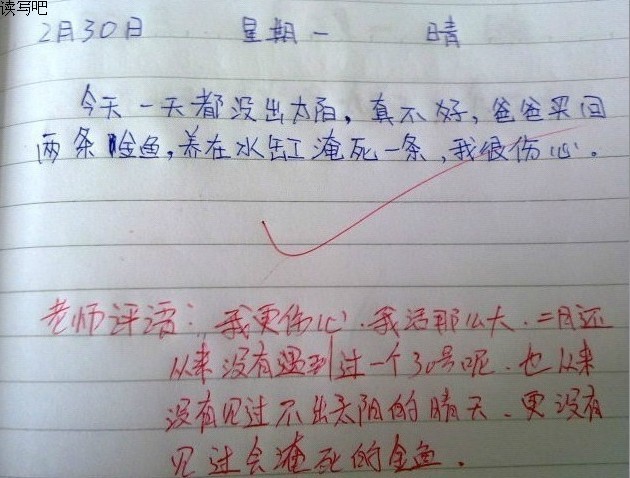 读写吧
2月30日 星期一 晴
今天一天都没出太阳，真不好，爸爸买回
两条金鱼，养在水缸淹死一条，我很伤心。
老师评语：我更伤心．我活那么大．二月还
从来没有遇到过一个30号呢．也从来
没有见过不出太阳的晴天．更没有
见过会淹死的金鱼．